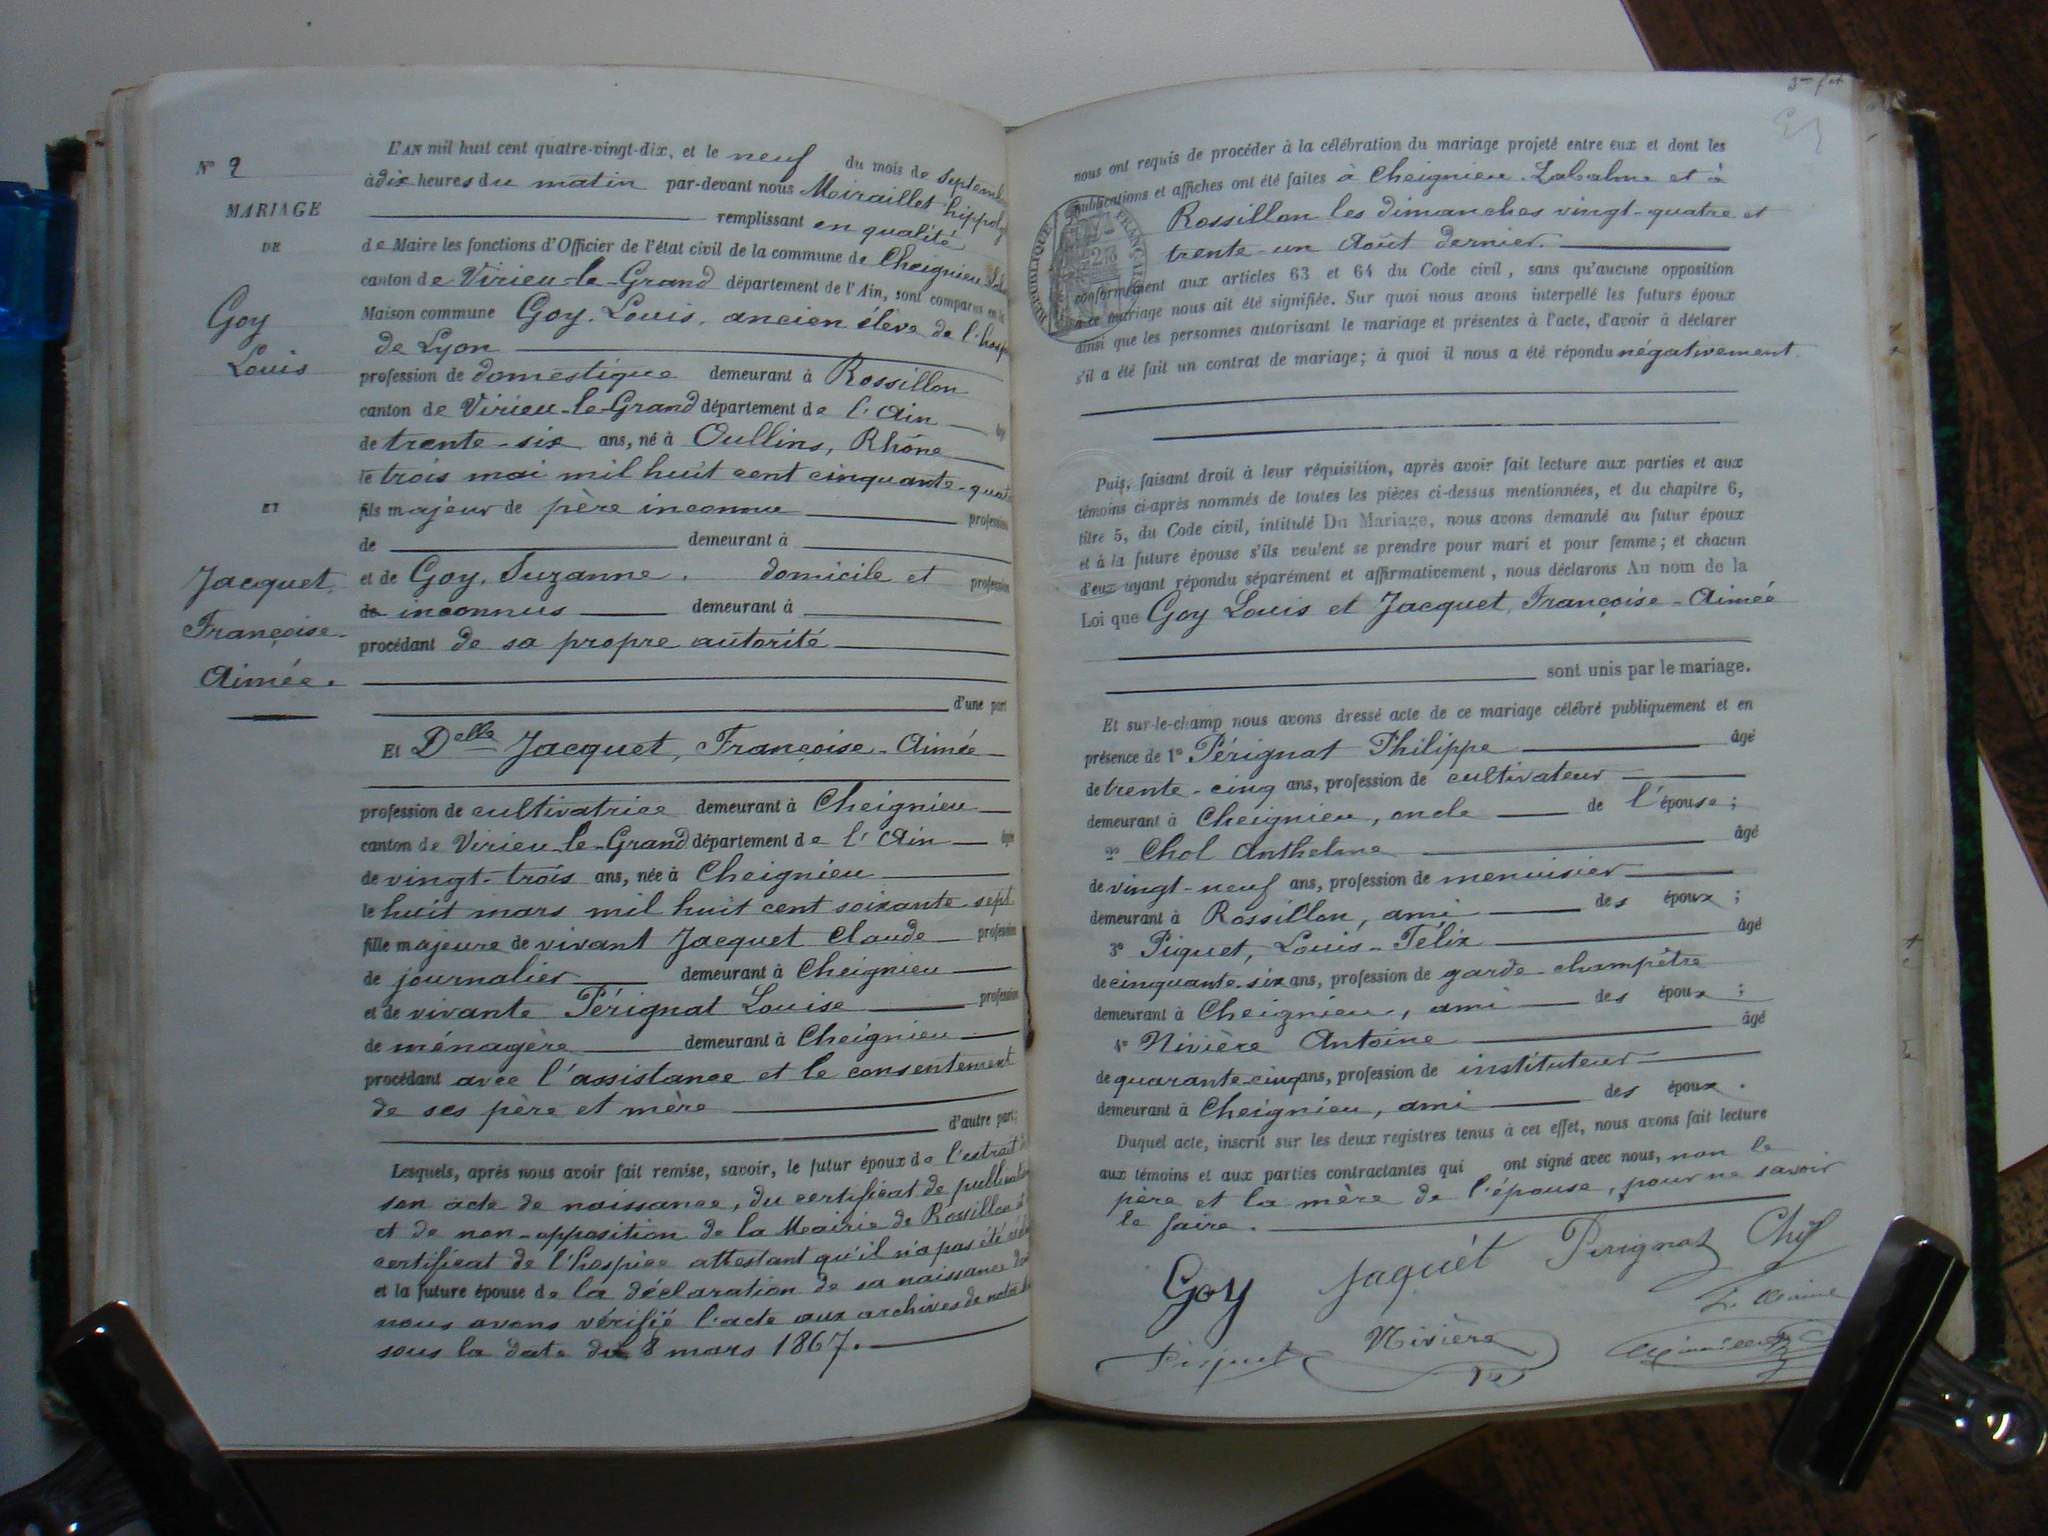 N° 2
MARIAGE
DE
Goy
Louis
ET
Jacquet
Françoise-
Aimée.
L'AN mil huit cent quatre-vingt-dix, et le neuf du mois de septembre
à dix heures du matin par-devant nous Miraillet hippolyte
remplissant en qualité
de Maire les fonctions d'Officier de l'état civil de la commune de Cheignieu
canton de Virieu-le-Grand département de l'Ain, sont comparus en la
Maison commune Goy, Louis, ancien élève de l'hosp
de Lyon
profession de domestique demeurant à Rossillon
canton de Virieu-le-Grand département de l'Ain âgé
de trente-six ans, né à Oullins, Rhône
le trois mai mil huit cent cinquante-quatre
fils majeur de père inconnu profession
de demeurant à
et de Goy, Suzanne. domicile et profession
de inconnus demeurant à
procédant de sa propre autorité
d'une part
Et Delle Jacquet, Françoise-Aimée
profession de cultivatrice demeurant à Cheignieu
canton de Virieu-le-Grand département de l'Ain âgée
de vingt-trois ans, née à Cheignieu
le huit mars mil huit cent soixante sept
fille majeure de vivant Jacquet Claude profession
de journalier demeurant à Cheignieu
et de vivante Pérignat Louise profession
de ménagère demeurant à Cheignieu
procédant avec l'assistance et le consentement
de ses père et mère
d'autre part;
Lesquels, après nous avoir fait remise, savoir, le futur époux de l'extrait de
son acte de naissance, du certificat de publication
et de non-opposition de la Mairie de Rossillon et
certificat de l'hospice attestant qu'il n'a pas été
et la future épouse de la déclaration de sa naissance dont
nous avons vérifié l'acte aux archives de notre
sous la date du 8 mars 1867.
nous ont requis de procéder à la célébration du mariage projeté entre eux et dont les
publications et affiches ont été faites à Cheignieu-Labalme et à
Rossillon les dimanches vingt-quatre et
trente-un Août dernier.
RÉPUBLIQUE FRANÇAISE
conformément aux articles 63 et 64 du Code civil, sans qu'aucune opposition
à ce mariage nous ait été signifiée. Sur quoi nous avons interpellé les futurs époux
ainsi que les personnes autorisant le mariage et présentes à l'acte, d'avoir à déclarer
s'il a été fait un contrat de mariage; à quoi il nous a été répondu négativement.
Puis, faisant droit à leur réquisition, après avoir fait lecture aux parties et aux
témoins ci-après nommés de toutes les pièces ci-dessus mentionnées, et du chapitre 6,
titre 5, du Code civil, intitulé Du Mariage, nous avons demandé au futur époux
et à la future épouse s'ils veulent se prendre pour mari et pour femme; et chacun
d'eux ayant répondu séparément et affirmativement, nous déclarons Au nom de la
Loi que Goy Louis et Jacquet, Françoise-Aimée
sont unis par le mariage.
Et sur-le-champ nous avons dressé acte de ce mariage célébré publiquement et en
présence de 1° Pérignat Philippe âgé
de trente-cinq ans, profession de cultivateur
demeurant à Cheignieu, oncle de l'épouse;
2° Chol Anthelme âgé
de vingt-neuf ans, profession de menuisier
demeurant à Rossillon, ami des époux;
3° Piquet, Louis-Félix âgé
de cinquante-six ans, profession de garde-champêtre
demeurant à Cheignieu, ami des époux;
4° Nivière Antoine âgé
de quarante-cinq ans, profession de instituteur
demeurant à Cheignieu, ami des époux.
Duquel acte, inscrit sur les deux registres tenus à cet effet, nous avons fait lecture
aux témoins et aux parties contractantes qui ont signé avec nous, non le
père et la mère de l'épouse, pour ne savoir
le faire.
Goy Jaquét Perignat Chol
Le Maire
Piquet Nivière